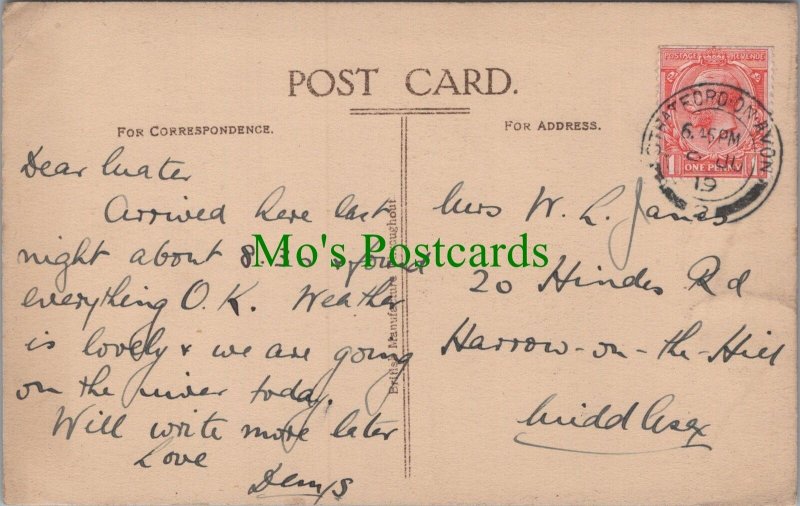 POST CARD.
FOR CORRESPONDENCE.
FOR ADDRESS.
POSTAGE REVENUE
1 ONE PENNY 1
STRATFORD-ON-AVON
PM
JU
19
2
Dear Mater
Arrived here last
night about 8 & found
everything O.K. Weather
is lovely & we are going
on the river today.
Will write more later
Love
Denys
British Manufacture Throughout
Mrs W. L. Janes
20 Hindes Rd
Harrow-on-the-Hill
Middlesex
Mo's Postcards